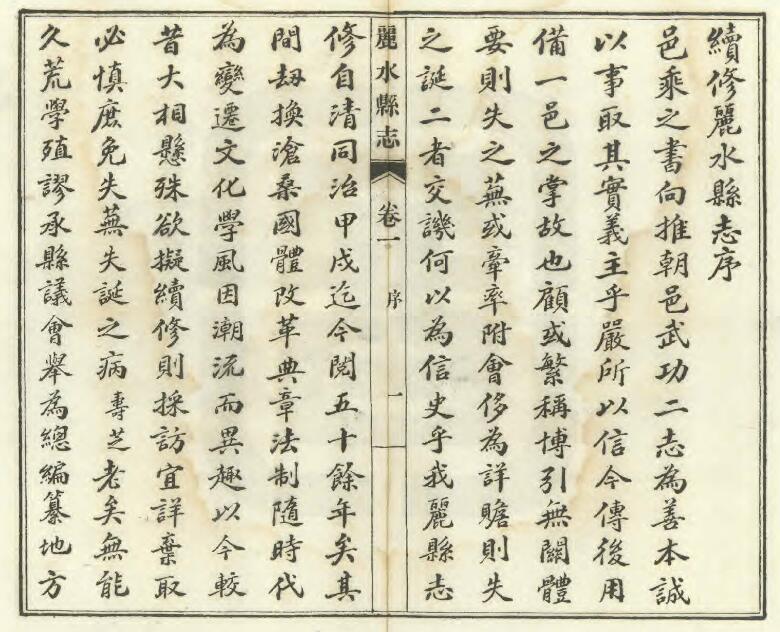 續修麗水縣志序
邑乘之書向推朝邑武功二志為善本誠
以事取其實義主乎嚴所以信今傳後用
備一邑之掌故也顧或繁稱博引無關體
要則失之蕪或牽率附會侈為詳贍則失
之誕二者交譏何以為信史乎我麗縣志
麗水縣志 卷一 序 一
修自清同治甲戌迄今閱五十餘年矣其
間劫換滄桑國體改革典章法制隨時代
為變遷文化學風因潮流而異趣以今較
昔大相懸殊欲擬續修則採訪宜詳棄取
必慎庶免失蕪失誕之病壽芝老矣無能
久荒學殖謬承縣議會舉為總編纂地方